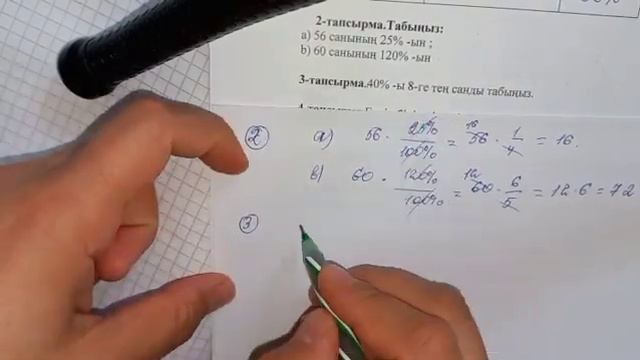 2-тапсырма.Табыңыз:
а) 56 санының 25% -ын ;
b) 60 санының 120% -ын
3-тапсырма.40% -ы 8-ге тең санды табыңыз.
② а) 56 · 25%/100% = 16 56 · 1/4 = 16.
в) 60 · 120%/100% = 12 60 · 6/5 = 12 · 6 = 72
③